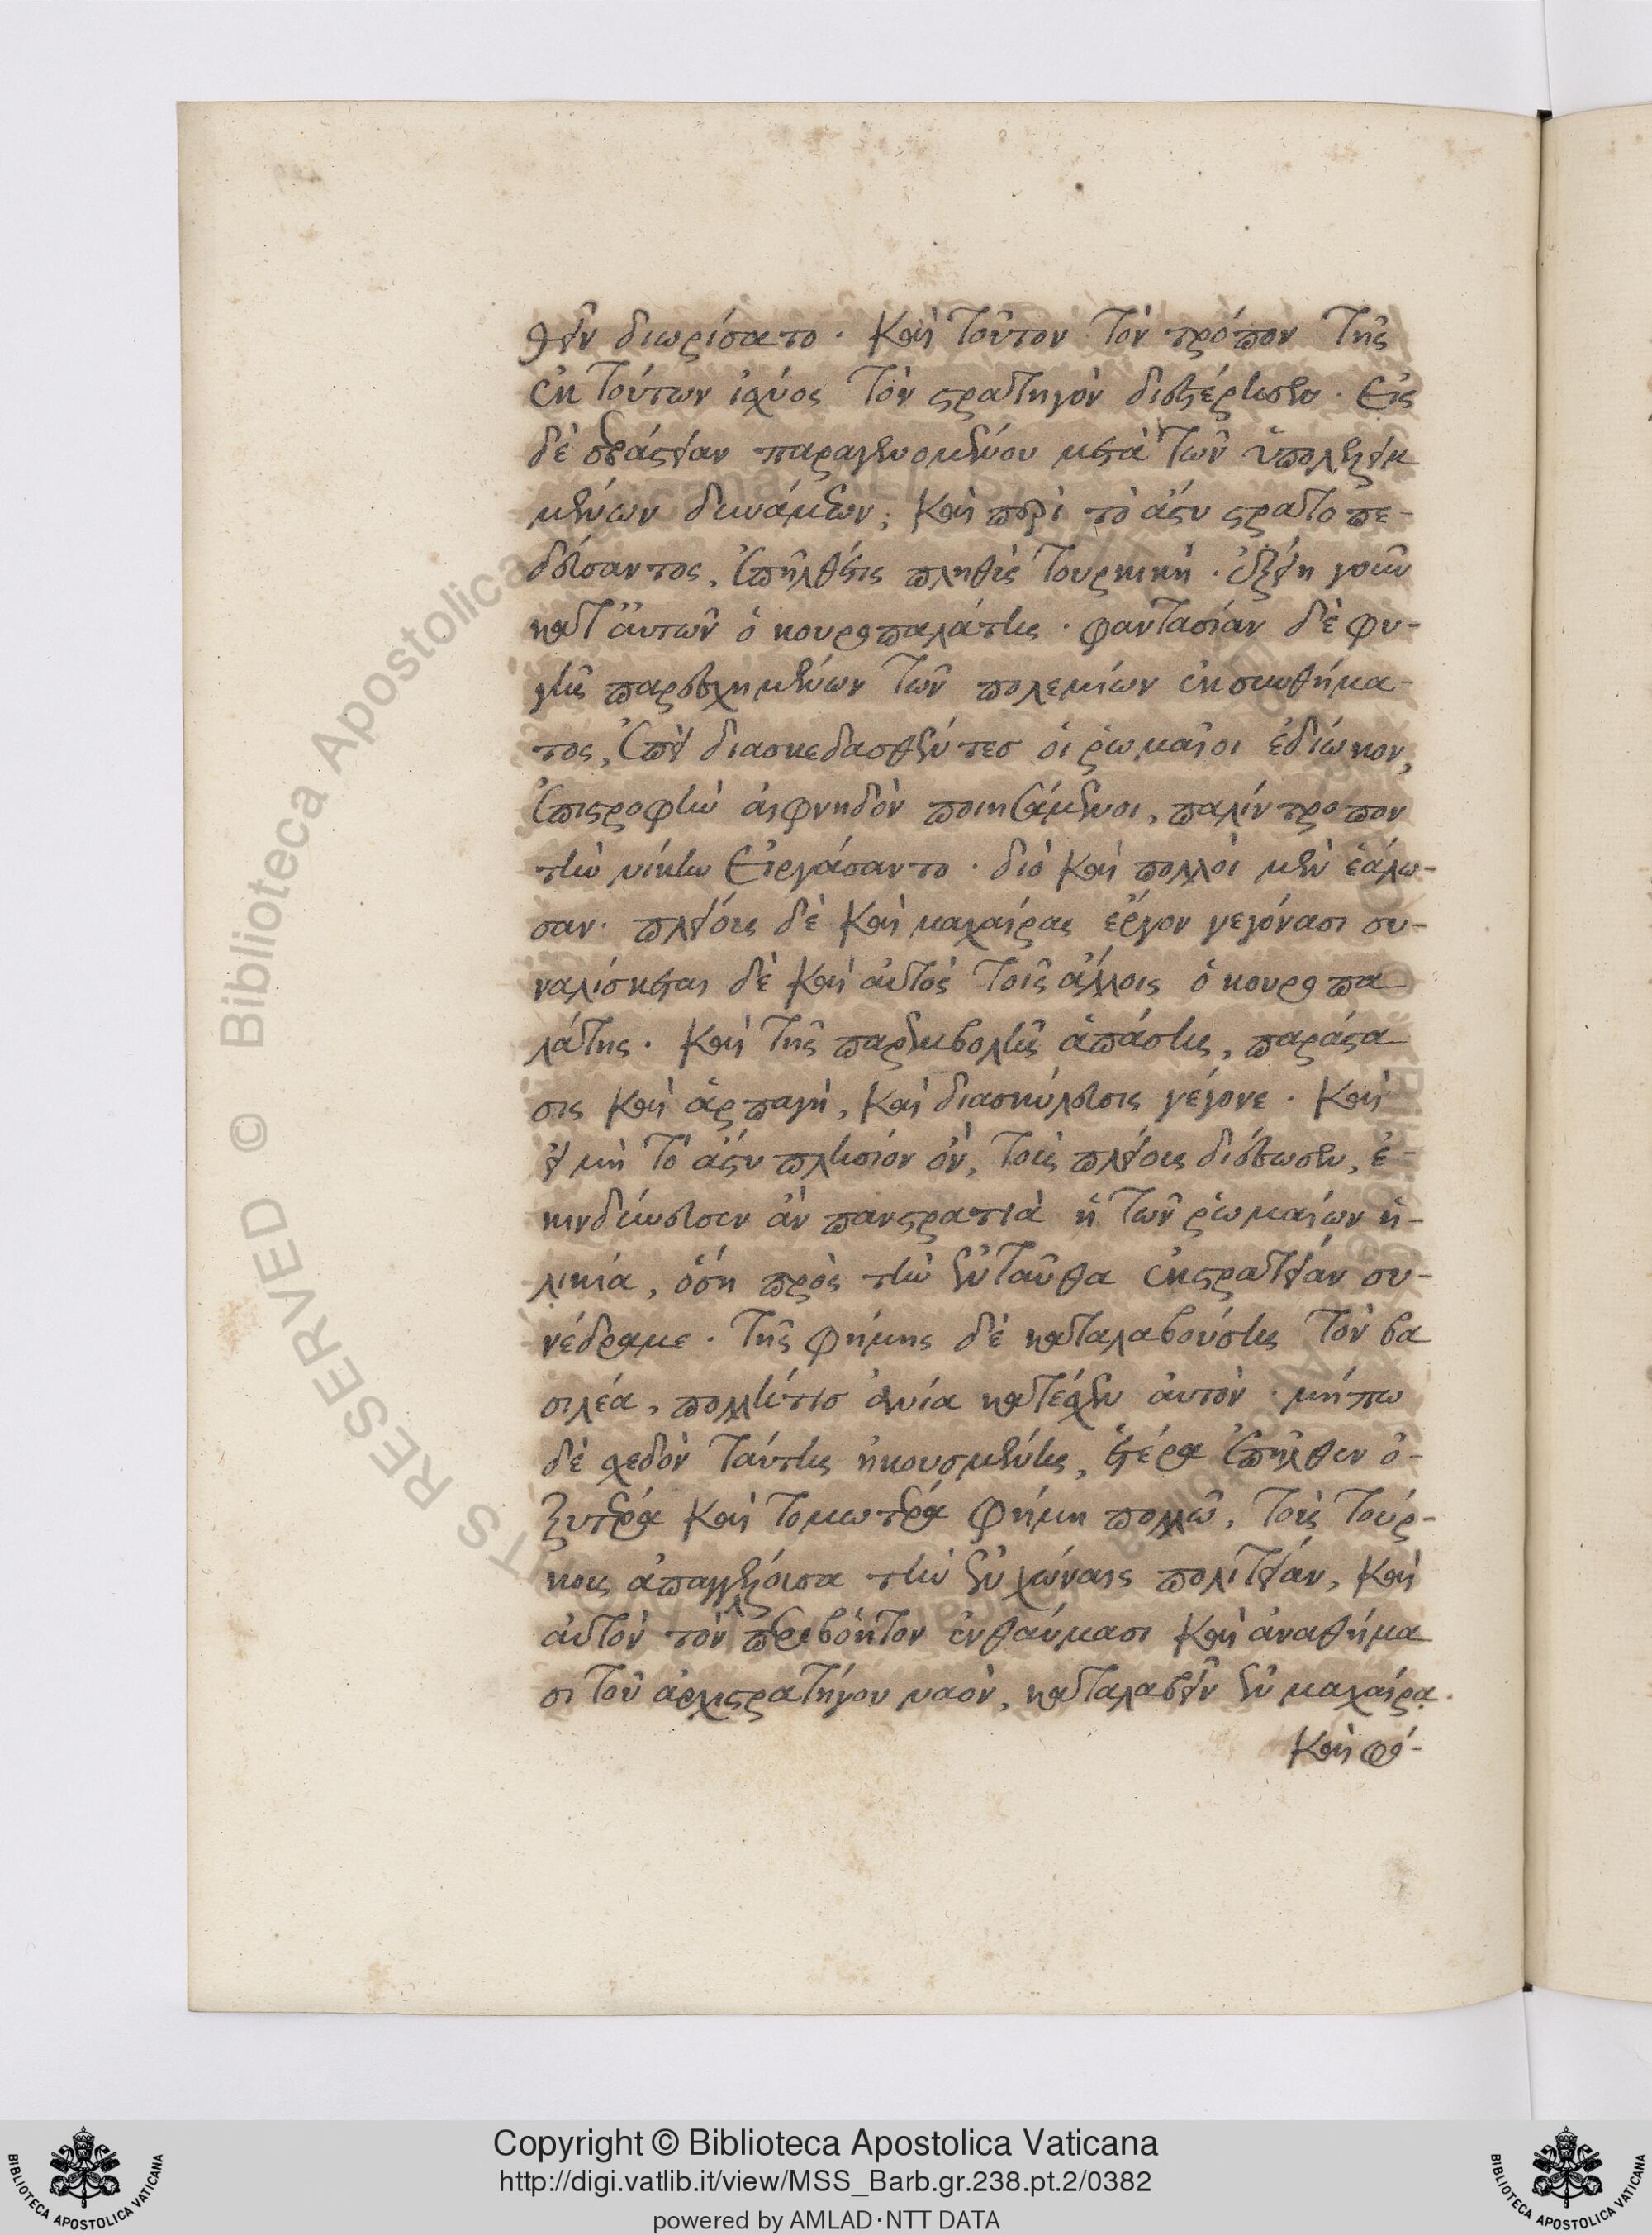 θεῖν διωρίσατο. καὶ τοῦτον τὸν τρόπον τῆς
ἐκ τούτων ἰσχύος τὸν στρατηγὸν διεστέρησεν. εἰς
δὲ σεβάστειαν παραγενομένου μετὰ τῶν ὑπολελειμ
μένων δυνάμεων, καὶ περὶ τὸ ἄστυ στρατοπε-
δεύσαντος, ἐπῆλθέ τις πληθὺς τουρκικὴ. ἐξῄει γοῦν
κατ' αὐτῶν ὁ κουροπαλάτης. φαντασίαν δὲ φυ-
γῆς παρεσχημένων τῶν πολεμίων ἐκ συνθήμα-
τος, ἐπεὶ διασκεδασθέντες οἱ ῥωμαῖοι ἐδίωκον,
ἐπιστροφὴν αἰφνηδὸν ποιησάμενοι, παλίντροπον
τὴν νίκην εἰργάσαντο. διὸ καὶ πολλοὶ μὲν ἑάλω-
σαν. πλείους δὲ καὶ μαχαίρας ἔργον γεγόνασι συ-
ναλίσκεται δὲ καὶ αὐτὸς τοῖς ἄλλοις ὁ κουροπα
λάτης. καὶ τῆς παρεμβολῆς ἁπάσης, παράστα
σις καὶ ἁρπαγὴ, καὶ διασκύλευσις γέγονε. καὶ
εἰ μὴ τὸ ἄστυ πλησίον ὂν, τοὺς πλείους διέσωσεν, ἐ-
κινδύνευσεν ἂν πανστρατιὰ ἡ τῶν ῥωμαίων ἡ-
λικία, ὅση πρὸς τὴν ἐνταῦθα ἐκστρατείαν συ-
νέδραμε. τῆς φήμης δὲ καταλαβούσης τὸν βα
σιλέα, πολλή τις ἀνία κατέσχεν αὐτὸν. μήπω
δὲ σχεδὸν ταύτης ἠκουσμένης, ἑτέρα ἐπῆλθεν ὀ-
ξυτέρα καὶ τομωτέρα φήμη πολλῶ, τοὺς τούρ-
κους ἀπαγγέλλουσα τὴν ἐν χώναις πολιτείαν, καὶ
αὐτὸν τὸν περιβόητον ἐν θαύμασι καὶ ἀναθήμα
σι τοῦ ἀρχιστρατήγου ναὸν, καταλαβεῖν ἐν μαχαίρα.
καὶ φθ-
Copyright © Biblioteca Apostolica Vaticana
http://digi.vatlib.it/view/MSS_Barb.gr.238.pt.2/0382
powered by AMLAD·NTT DATA